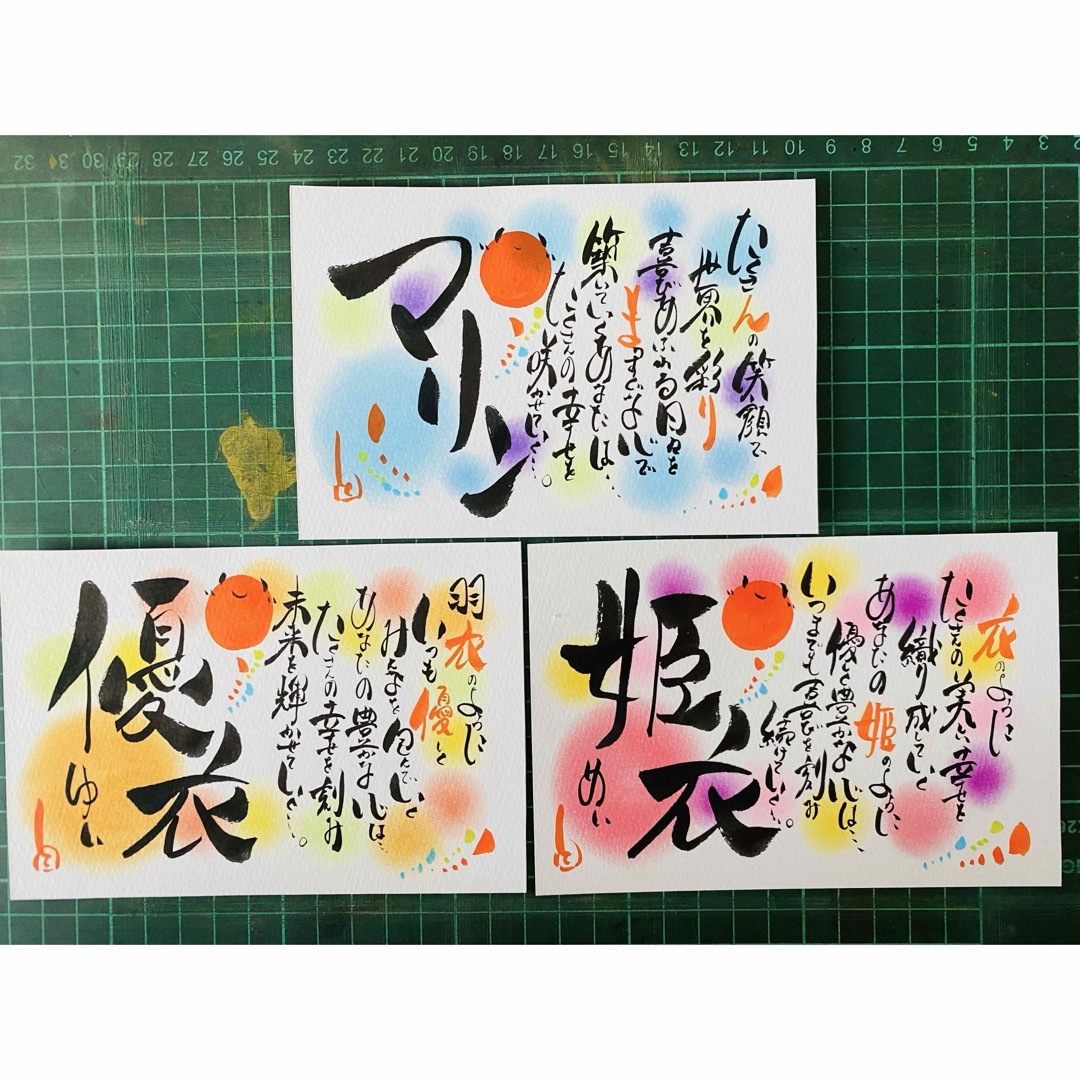 32 31 30 29 28 27 26 25 24 23 22 21 20 19 18 17 16 15 14 13 12 11 10 9 8 7 6 5 4 3 2
たくさんの笑顔で
世界を彩り
喜びあふれる日々を
まっすぐな心で
築いていくあなたは、、
たくさんの幸せを
咲かせていく…。
マリン
羽衣のように
いつも優しく
みんなを包んでいく
あなたの豊かな心は、、
たくさんの幸せを刻み
未来を輝かせていく…。
優衣
ゆい
衣のように
たくさんの笑いと幸せを
織り成していく
あなたの姫のように
優しく豊かな心は、、
いつまでも喜びを刻み
続けていく…。
姫衣
めい